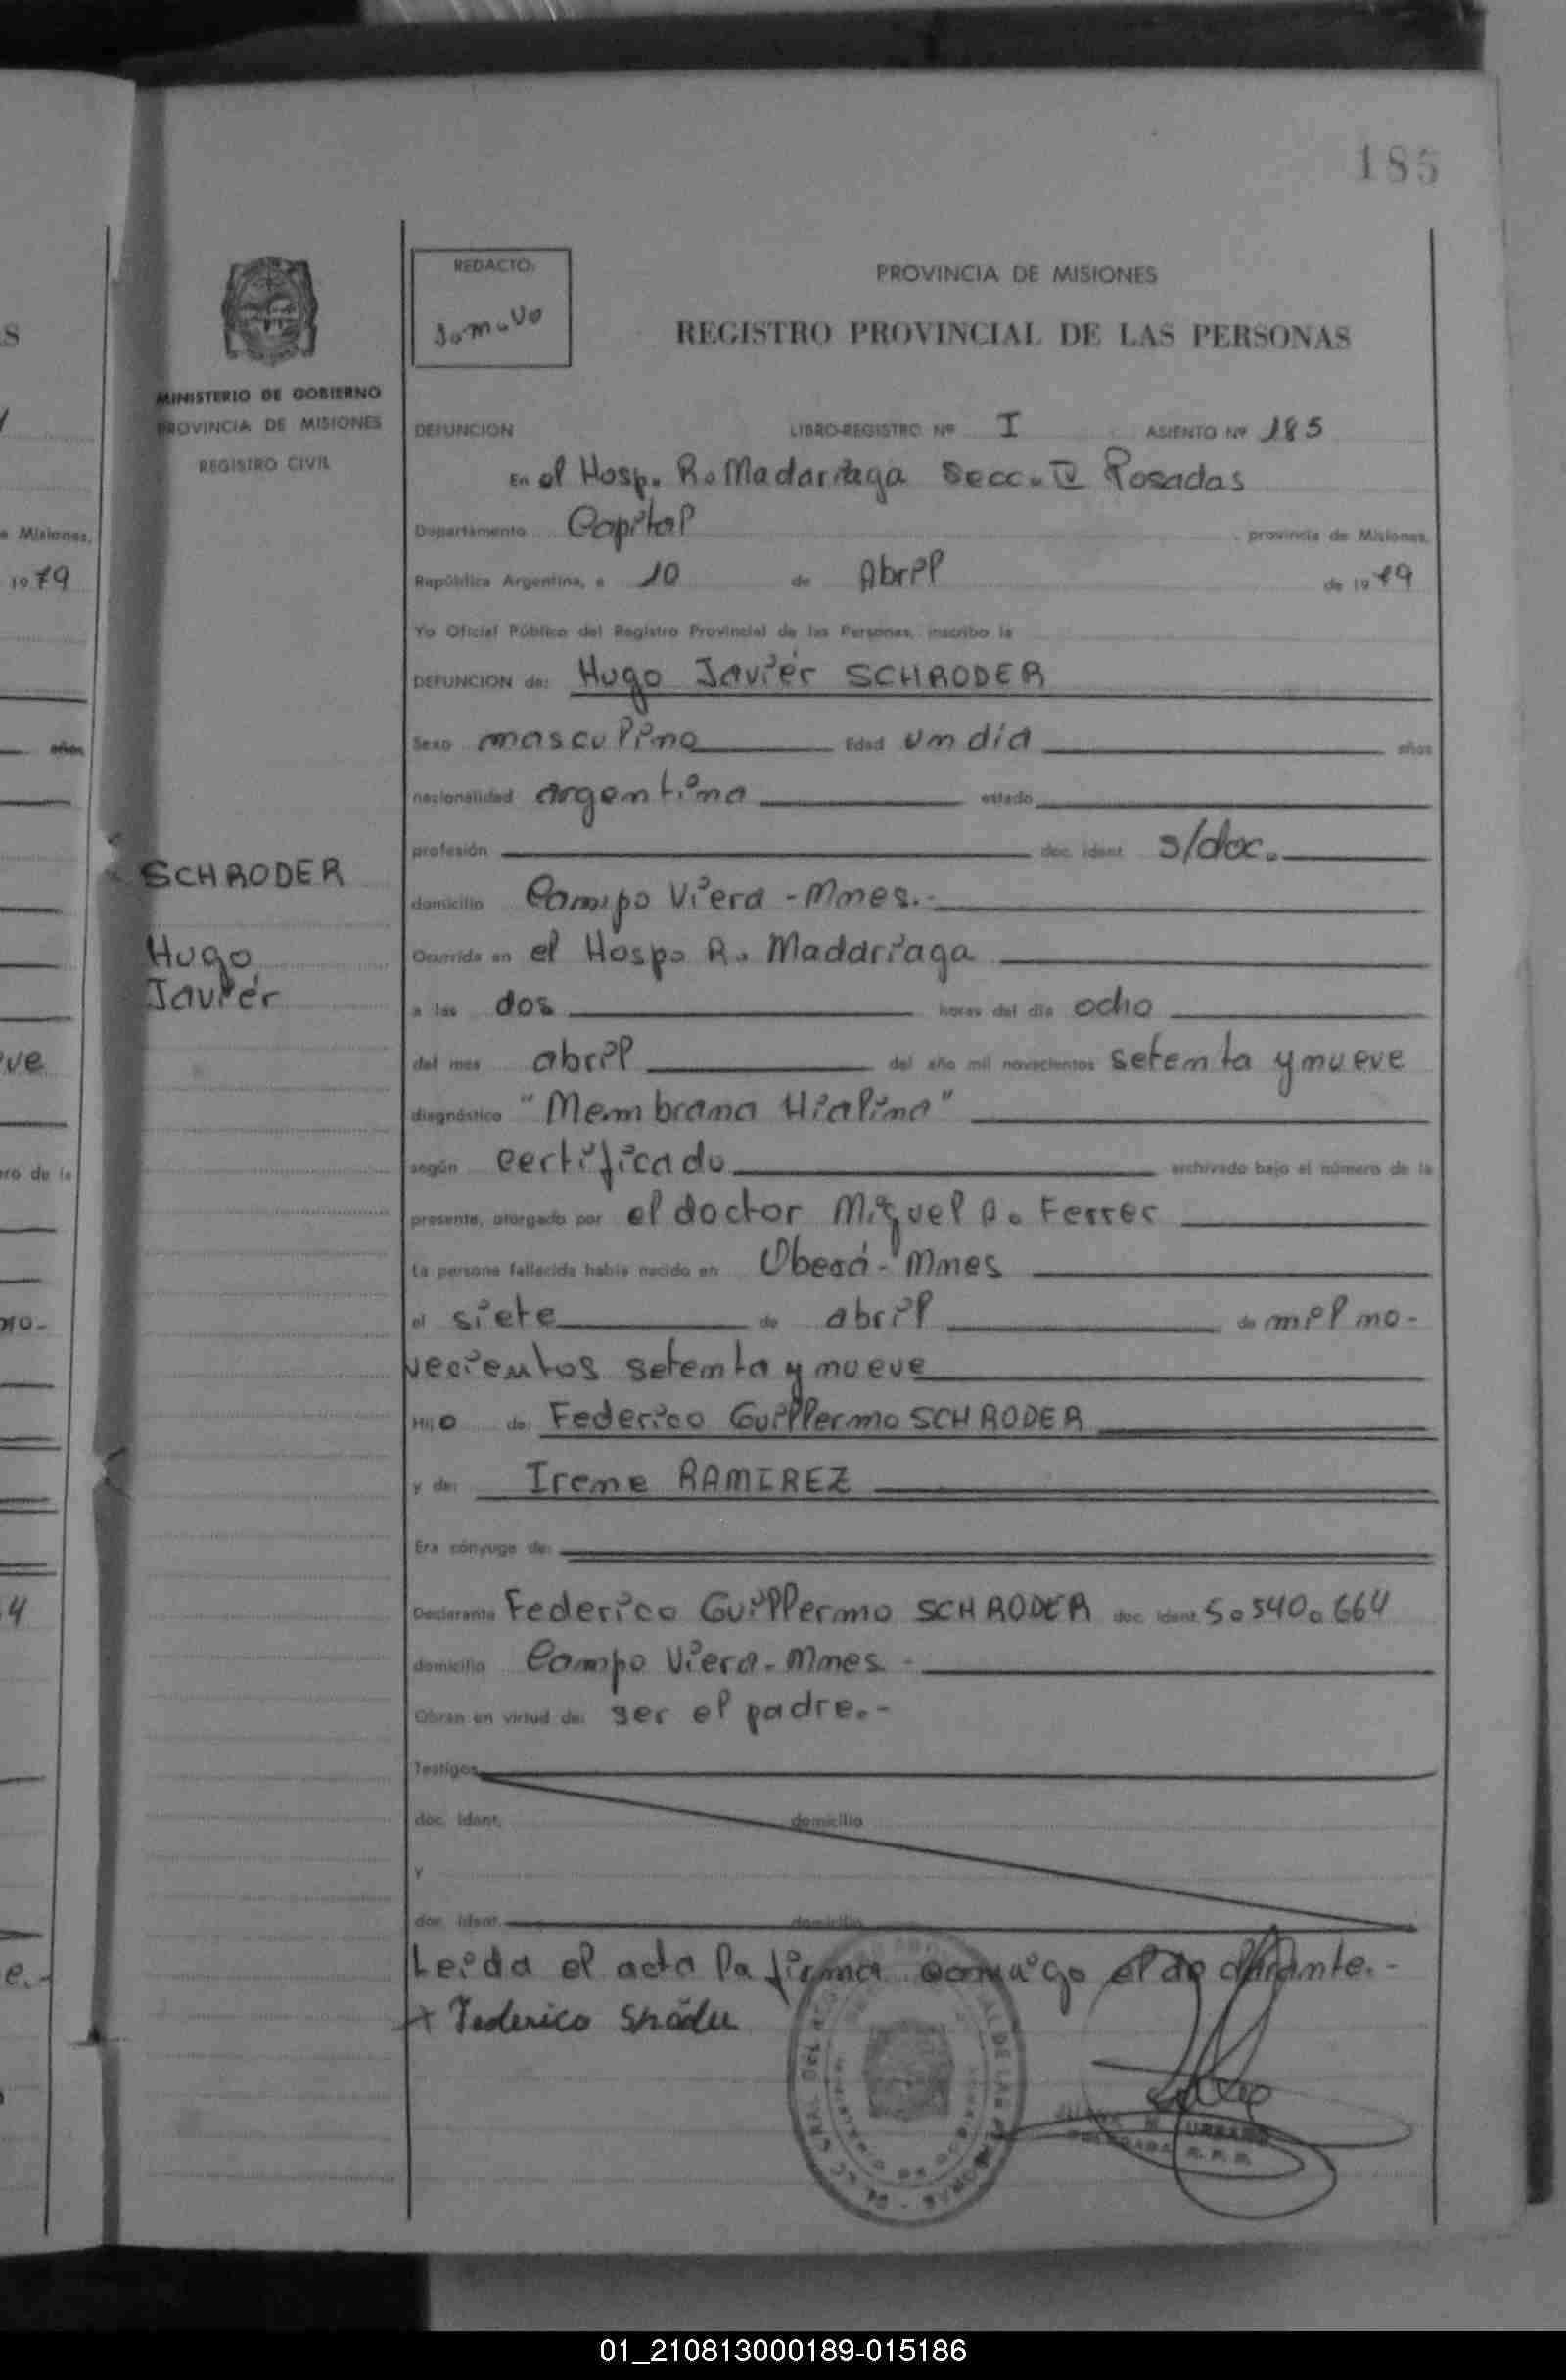 185
REDACTO:
PROVINCIA DE MISIONES
REGISTRO PROVINCIAL DE LAS PERSONAS
MINISTERIO DE GOBIERNO
PROVINCIA DE MISIONES
REGISTRO CIVIL
DEFUNCION LIBRO-REGISTRO Nº I ASIENTO Nº 185
En el Hosp. R. Madariaga Secc. IV Posadas
Departamento Capital provincia de Misiones.
República Argentina, a 10 de Abril de 1979
Yo Oficial Público del Registro Provincial de las Personas, inscribo la
DEFUNCION de: Hugo Javier SCHRODER
Sexo masculino Edad un día años
nacionalidad argentina estado
profesión doc. ident. s/doc.
SCHRODER
domicilio Campo Viera - Mnes.-
Hugo
Javier
Ocurrida en el Hosp. R. Madariaga
a las dos horas del día ocho
del mes abril del año mil novecientos setenta y nueve
diagnóstico "Membrana Hialina"
según certificado archivado bajo el número de la
presente, otorgado por el doctor Miguel A. Ferrer
La persona fallecida había nacido en Oberá - Mnes
el siete de abril de mil no-
vecientos setenta y nueve
Hijo de: Federico Guillermo SCHRODER
y de: Irene RAMIREZ
Era cónyuge de:
Declarante Federico Guillermo SCHRODER doc. ident. 5.540.664
domicilio Campo Viera - Mnes -
Obran en virtud de: ser el padre.-
Testigos
doc. ident. domicilio
y
doc. ident. domicilio
Leida el acta la firma conmigo el declarante.-
Federico
URBANO
01_210813000189-015186